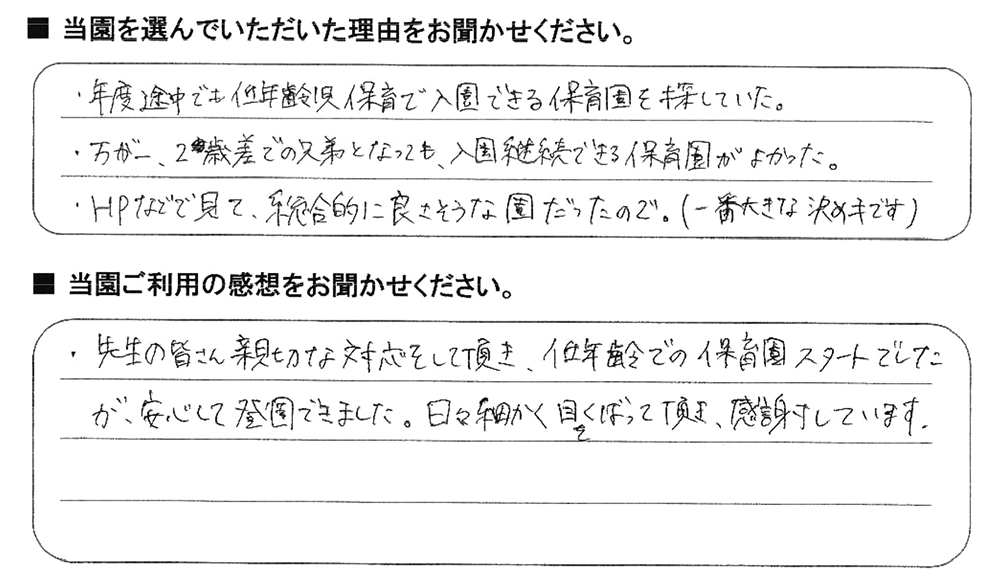 ■ 当園を選んでいただいた理由をお聞かせください。
・年度途中でも低年齢児保育で入園できる保育園を探していた。
・万が一、2歳差での兄弟となっても、入園継続できる保育園がよかった。
・HPなどで見て、総合的に良さそうな園だったので。(一番大きな決めキです)
■ 当園ご利用の感想をお聞かせください。
・先生の皆さん親切な対応をして頂き、低年齢での保育園スタートでした
が、安心して登園できました。日々細かく目をくばって頂き、感謝しています.